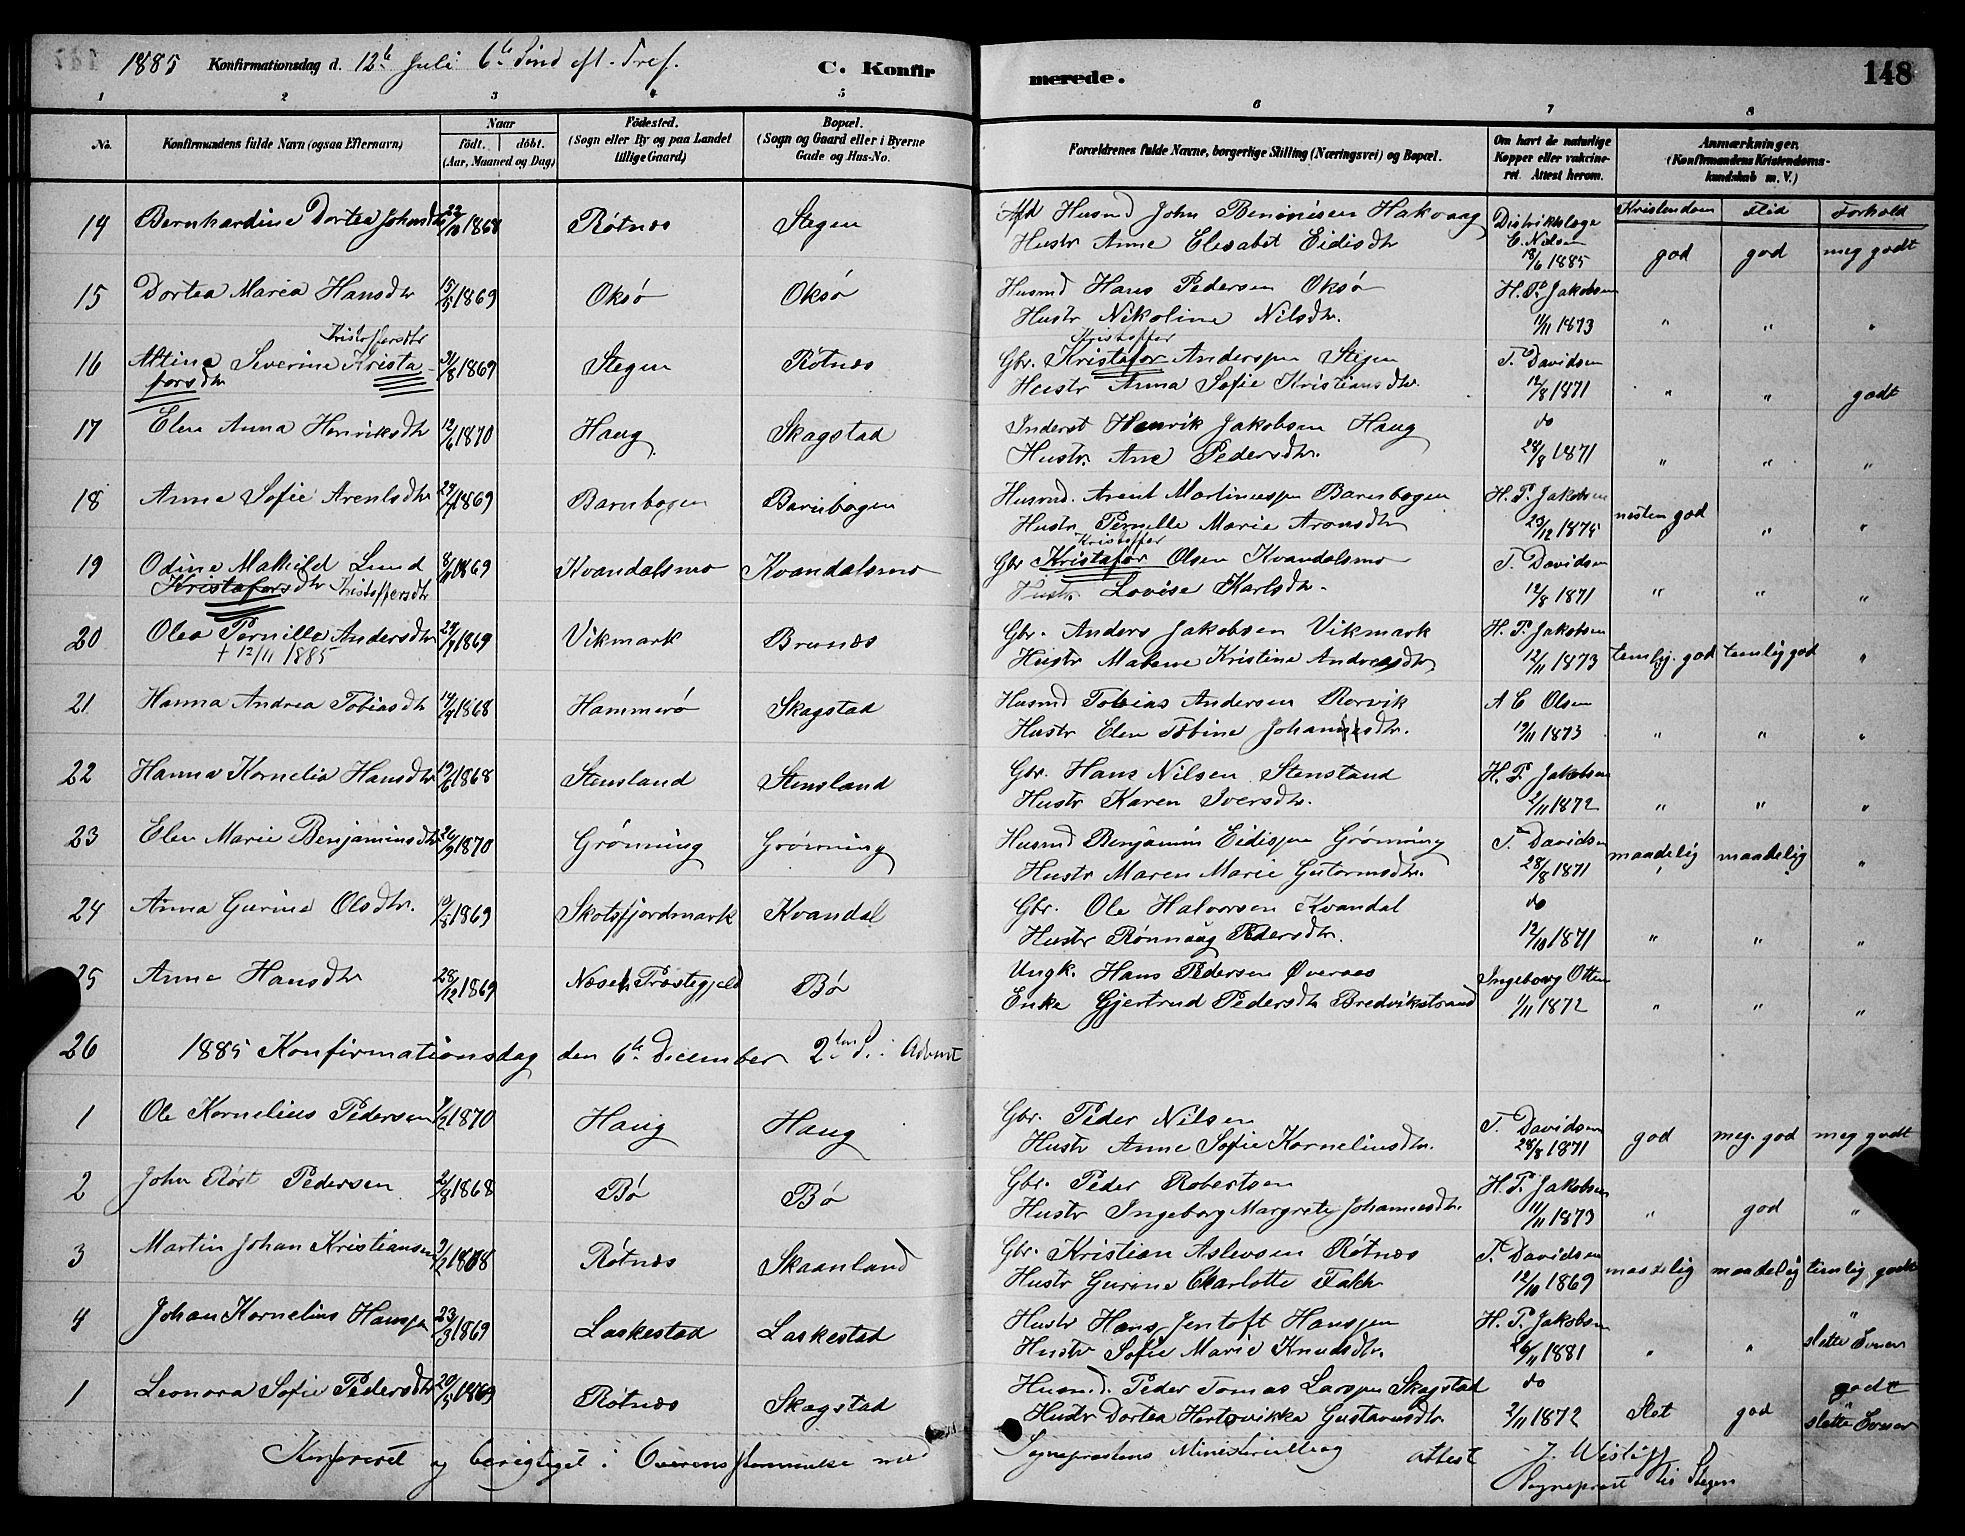 1885 Konfirmationsdag d. 12te Juli 6te Sønd eft. Tref. C. Konfirmerede. 148
1 2 3 4 5 6 7 8
No. Konfirmandens fulde Navn (ogsaa Efternavn) Naar født. døbt. (Aar, Maaned og Dag) Fødested. (Sogn eller By og paa Landet tillige Gaard) Bopæl. (Sogn og Gaard eller i Byerne Gade og Hus-No. Forældrenes fulde Navne, borgerlige Stilling (Næringsvei) og Bopæl. Om havt de naturlige Kopper eller vakcineret. Attest herom. Anmærkninger. (Konfirmandens Kristendomskundskab m. V.)
Kristendom Flid Forhold
14 Bernhardine Dortea Johnsdtr 22/10 1868 Røtnæs Stegen Afd Husmd John Benonisen Hakvaag Distriktslæge
Hustr Anne Elesabet Eidisdtr C. Nilsen 18/6 1885 god god meg godt
15 Dortea Maria Hansdtr 15/5 1869 Oksø Oksø Husmd Hans Pedersen Oksø H. P. Jakobsen
Hustr Nikoline Nilsdtr. 11/11 1873 " " "
Kristoffersdtr Kristoffer
16 Altine Severine Krista- 31/8 1869 Stegen Røtnæs Gbr. Kristafor Anderssen Stegen T. Davidsen
forsdtr Hustr Anna Sofie Kristiansdtr. 12/8 1871 " " godt
17 Elen Anna Henriksdtr 12/6 1870 Haug Skagstad Inderst Henrik Jakobsen Haug do
Hustr. Ane Pedersdtr. 28/8 1871 " " "
18 Anne Sofie Arentsdtr 1869 Barnbogen Barnbogen Husmd. Arent Martinussen Barnbogen H. P. Jakobsen
Hustr Pernille Marie Aronsdtr 23/12 1875 nesten god " "
Kristoffer
19 Odine Mathild Lund 1869 Kvandalsmo Kvandalsmo Gbr Kristafor Olsen Kvandalsmo T. Davidsen
Kristaforsdtr Kristoffersdtr Hustr. Lovise Karlsdtr. 12/8 1871 " " "
20 Olea Pernille Andersdtr 1869 Vikmark Brenæs Gbr. Anders Jakobsen Vikmark H. P. Jakobsen
+ 12/11 1885 Hustr Malene Kristine Andreasdtr 12/11 1873 temlig. god temlig god "
21 Hanna Andrea Tobiasdtr 1868 Hammerø Skagstad Husmd Tobias Andersen Rørvik A C Olsen
Hustr Elen Tobine Johannesdtr. 19/11 1873 " " "
22 Hanna Kornelia Hansdtr 19/6 1868 Stensland Stensland Gbr. Hans Nilsen Stensland H. P. Jakobsen
Hustr Karen Iversdtr. 2/11 1872 " " "
23 Elen Marie Benjaminsdtr 1870 Grønning Grønning Husmd Benjamin Eidissen Grønning T. Davidsen
Hustr Maren Marie Gutormsdtr. 28/8 1871 maadelig maadelig "
24 Anna Gurine Olsdtr. 10/5 1869 Skotsfjordmark Kvandal Gbr. Ole Halvorsen Kvandal do
Hustr Rønnaug Pedersdtr. 12/10 1871 " " "
25 Anne Hansdtr 28/12 1869 Næsets Præstegjeld Bø Ungk. Hans Pedersen Øveraas Ingeborg Otten
Enke Gjertrud Pedersdtr Bredvikstrand 1/11 1872 " " "
26 1885 Konfirmationsdag den 6te December 2den S. i Advent
1 Ole Kornelius Pedersen 1870 Haug Haug Gbr. Peder Nilsen T. Davidsen
Hustr Anne Sofie Korneliusdtr. 28/8 1871 god meg. god meg godt
2 John Røst Pedersen 2/8 1868 Bø Bø Gbr. Peder Robertsen H. P. Jakobsen
Hustr Ingeborg Margrete Johannesdtr. 11/11 1873 " god "
3 Martin Johan Kristiansen 1868 Røtnæs Skaanland Gbr. Kristian Aslevsen Røtnæs T. Davidsen
Hustr Gurine Charlotte Falch 12/10 1869 maadelig maadelig temlig godt
4 Johan Kornelius Hanssen 23/3 1869 Laskestad Laskestad Hustr Hans Jentoft Hanssen H. P. Jakobsen "
Hustr Sofie Marie Knudsdtr. 26/11 1881 " " slette Evner
1 Leonora Sofie Pedersdtr 1869 Røtnæs Skagstad Husmd. Peder Tomas Larssen Skagstad do godt
Hustr Dortea Hertevikka Gustavusdtr. 2/11 1872 Slet god slette Evner
Konfereret og berigtiget i Overensstemmelse med Sogneprestens Ministerialbog attest
Sogneprest til Stegen